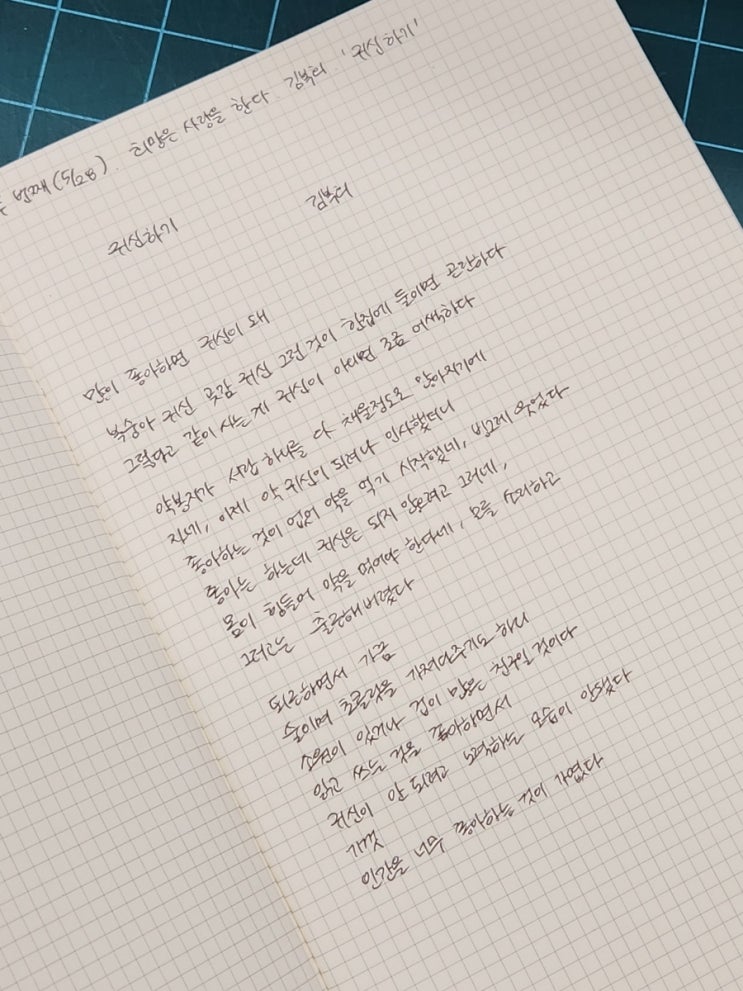 번째(5/28). 희망은 사랑을 한다. 김복희. '귀신하기'
귀신하기
김복희
많이 좋아하면 귀신이 돼
복숭아 귀신 곶감 귀신 그런 것이 한집에 들이면 곤란하다
그렇다고 같이 사는 게 귀신이 아니면 조금 어색하다
약봉지가 서랍 하나를 다 채울정도로 많아지기에
자네, 이제 약 귀신이 되려나 인사했더니
좋아하는 것이 없어 약을 먹기 시작했네, 빙그레 웃었다
좋아는 하는데 귀신은 되지 않으려고 그러네,
몸이 힘들어 약을 먹어야 한다네, 모를 소리하고
그러고는 출근해버렸다
퇴근하면서 가끔
술이며 초콜릿을 가져다주기도 하니
소원이 있거나 겁이 많은 친구일 것이다
읽고 쓰는 것을 좋아하면서
귀신이 안 되려고 노력하는 모습이 안됐다
기껏
인간을 너무 좋아하는 것이 가엾다